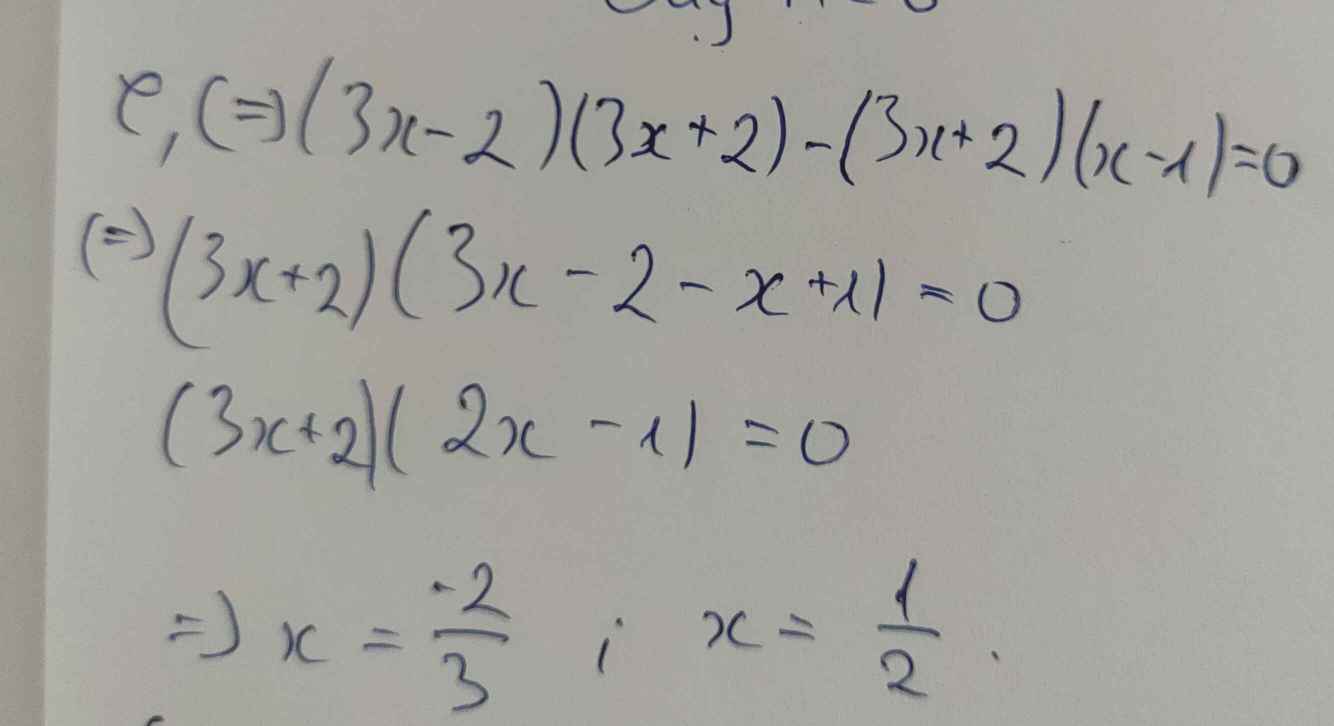 e, (=) (3x-2)(3x+2)-(3x+2)(x-1)=0
(=) (3x+2)(3x-2-x+1)=0
(3x+2)(2x-1)=0
=) x = -2/3 ; x = 1/2.